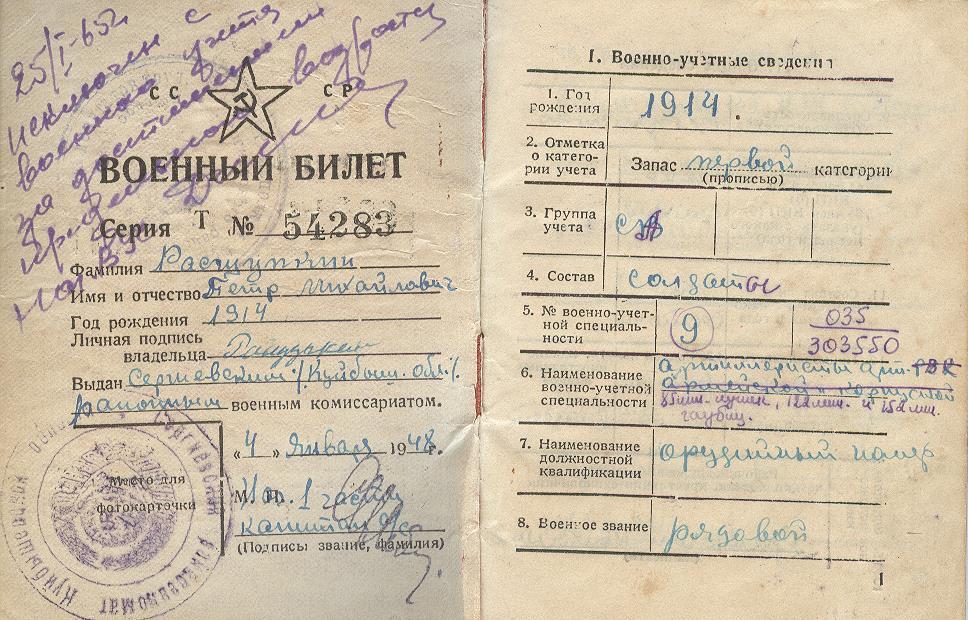 25/I-65г
исключен с
военного учета
за достижением
предельного возраста
СС СР
ВОЕННЫЙ БИЛЕТ
Серия Т № 54283
Фамилия Расщупкин
Имя и отчество Петр Михайлович
Год рождения 1914
Личная подпись
владельца
Выдан Сергиевским /Куйбыш. обл/.
районным военным комиссариатом.
„4 „ января 1948 г.
Место для
фотокарточки
М. П. Нач. 1 части
капитан
(Подписы звание, фамилия)
I. Военно-учетные сведения
1. Год
рождения
1914.
2. Отметка
о катего-
рии учета
Запас первой категории
(прописью)
3. Группа
учета
СА
4. Состав
солдаты
5. № военно-учет-
ной специаль-
ности
9
035
303550
6. Наименование
военно-учетной
специальности
Артиллеристы арт.
армейской и корпусной
85мм. пушек, 122мм. и 152мм.
гаубиц.
7. Наименование
должностной
квалификации
орудийный номер
8. Военное звание
рядовой
1